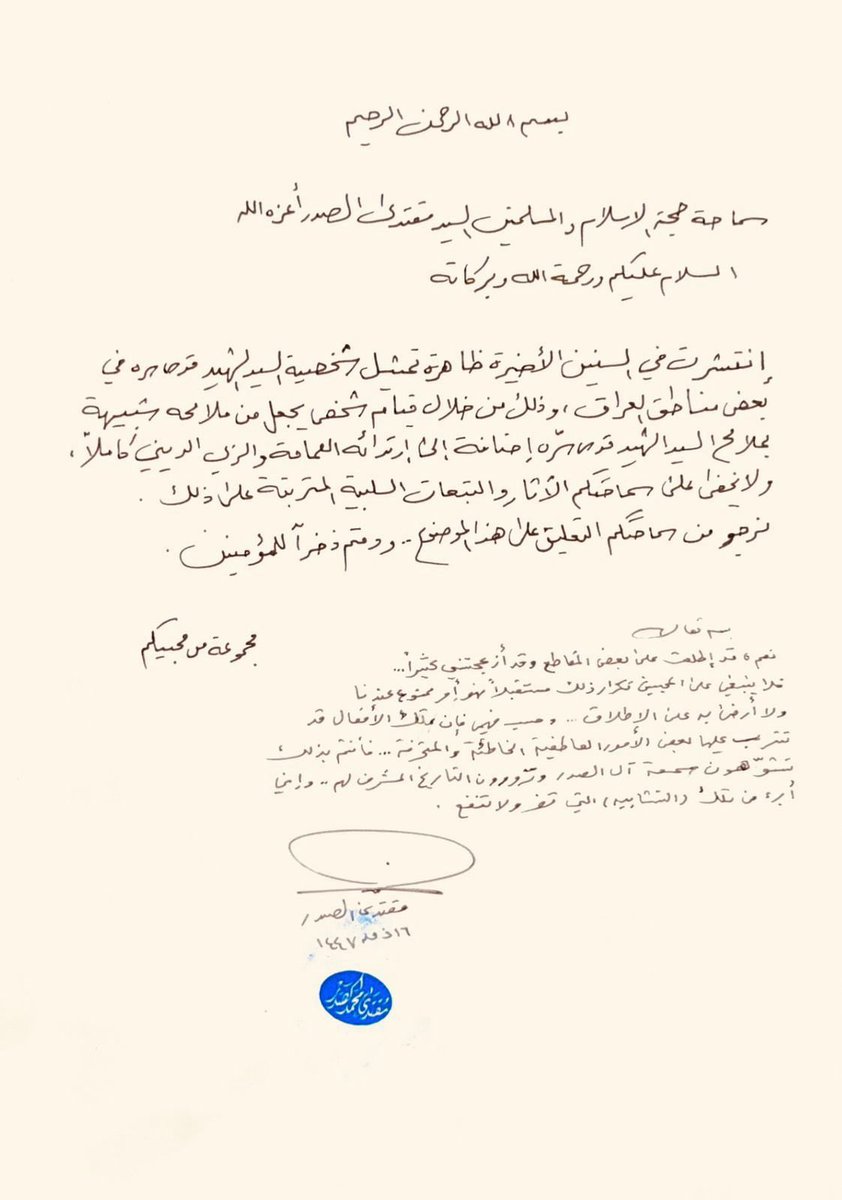 بسم الله الرحمن الرحيم
سماحة حجة الاسلام والمسلمين السيد مقتدى الصدر أعزه الله
السلام عليكم ورحمة الله وبركاته
إنتشرت في السنين الأخيرة ظاهرة تمثيل شخصية السيد الشهيد قدس سره في
بعض مناطق العراق، وذلك من خلال قيام شخص يجعل من ملامحه شبيهة
بملامح السيد الشهيد قدس سرّه إضافة إلى إرتدائه العمامة والزي الديني كاملاً،
ولا يخفى على سماحتكم الآثار والتبعات السلبية المترتبة على ذلك .
نرجو من سماحتكم التعليق على هذا الموضوع .. ودمتم ذخراً للمؤمنين .
مجموعة من محبيكم
بسمه تعالى
نعم، قد إطلعت على بعض المقاطع وقد أزعجتني كثيراً...
فلا ينبغي على المحبين تكرار ذلك مستقبلاً فهو أمر ممنوع عندنا
ولا أرضى به على الإطلاق ... وحسب فهمي فإن تلك الأفعال قد
تترتب عليها بعض الأمور العاطفية الخاطئة والمنحرفة ... فأنتم بذلك
تشوّهون سمعة آل الصدر وتزورون التاريخ المشرف لهم .. وإني
أبرء من تلك (التشابيه) التي تضر ولا تنفع .
مقتدى الصدر
١٤٤٧
مقتدى محمد الصدر